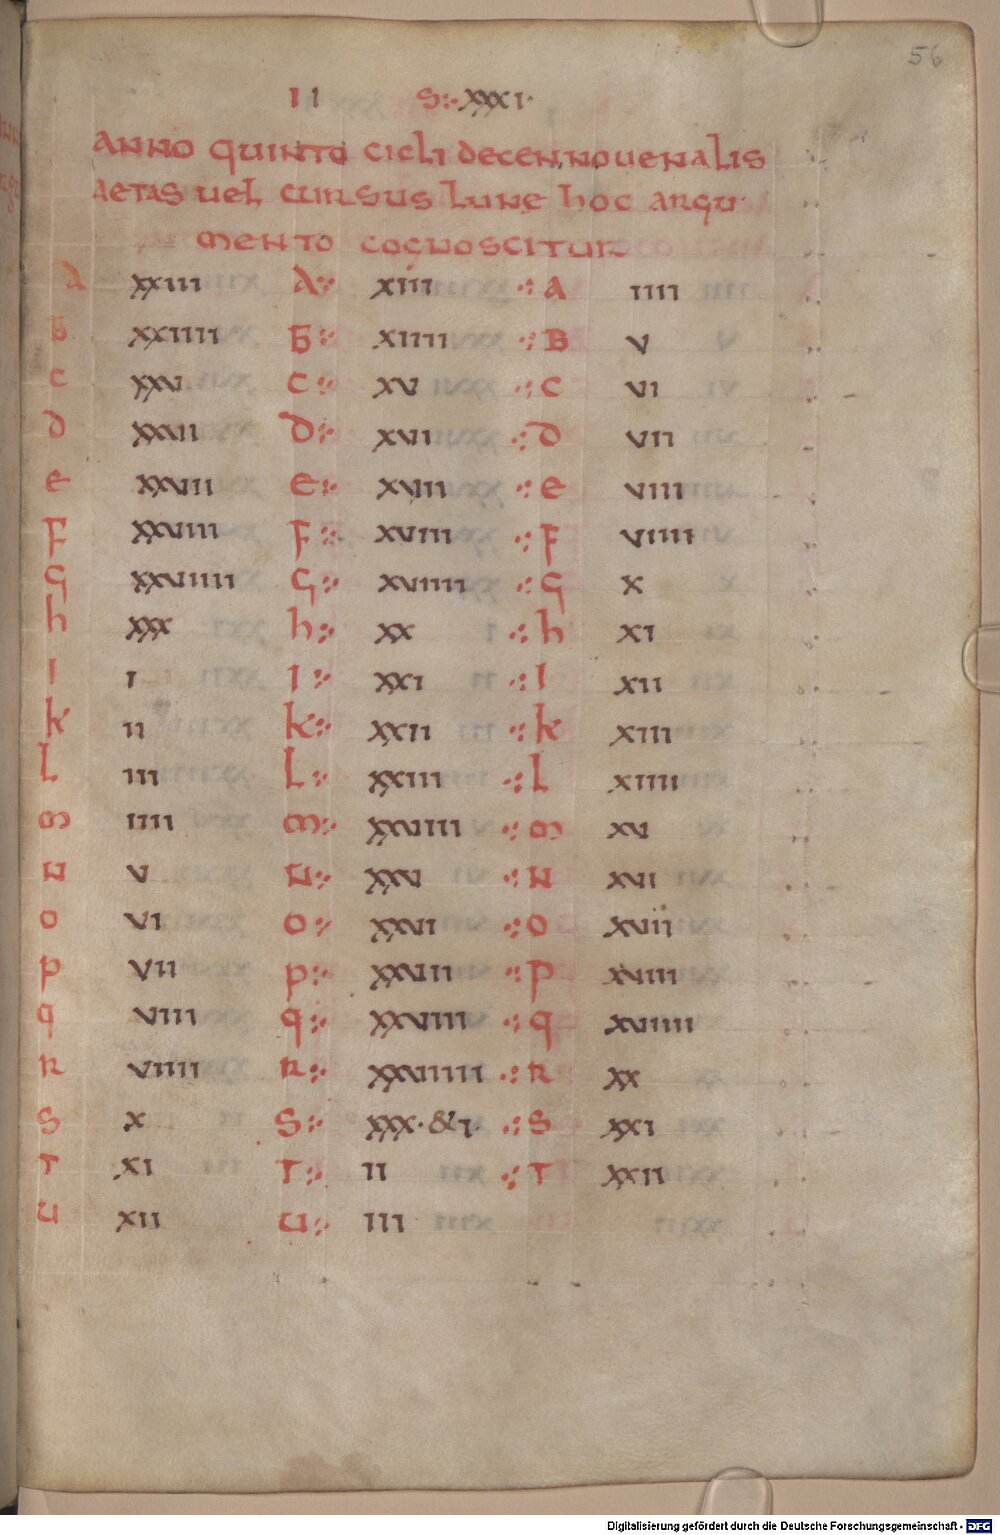 56
II S:·XXXI·
ANNO QUINTO CICLI DECENNOUENALIS
AETAS UEL CURSUS LUNE hOC ARGU
MENTO COGNOSCITUR
A XXIII A:· XIII ·:A IIII
B XXIIII B:· XIIII ·:B V
C XXV C:· XV ·:C VI
D XXVI D:· XVI ·:D VII
E XXVII E:· XVII ·:E VIII
F XXVIII F:· XVIII ·:F VIIII
G XXVIIII G:· XVIIII ·:G X
h XXX h:· XX ·:h XI
I I I:· XXI ·:I XII
K II K:· XXII ·:K XIII
L III L:· XXIII ·:L XIIII
M IIII M:· XXVIIII ·:M XV
N V N:· XXV ·:N XVI
O VI O:· XXVI ·:O XVII
P VII P:· XXVII ·:P XVIII
q VIII q:· XXVIII ·:q XVIIII
R VIIII R:· XXVIIII ·:R XX
S X S:· XXX·&I· ·:S XXI
T XI T:· II ·:T XXII
U XII U:· III
Digitalisierung gefördert durch die Deutsche Forschungsgemeinschaft - DFG